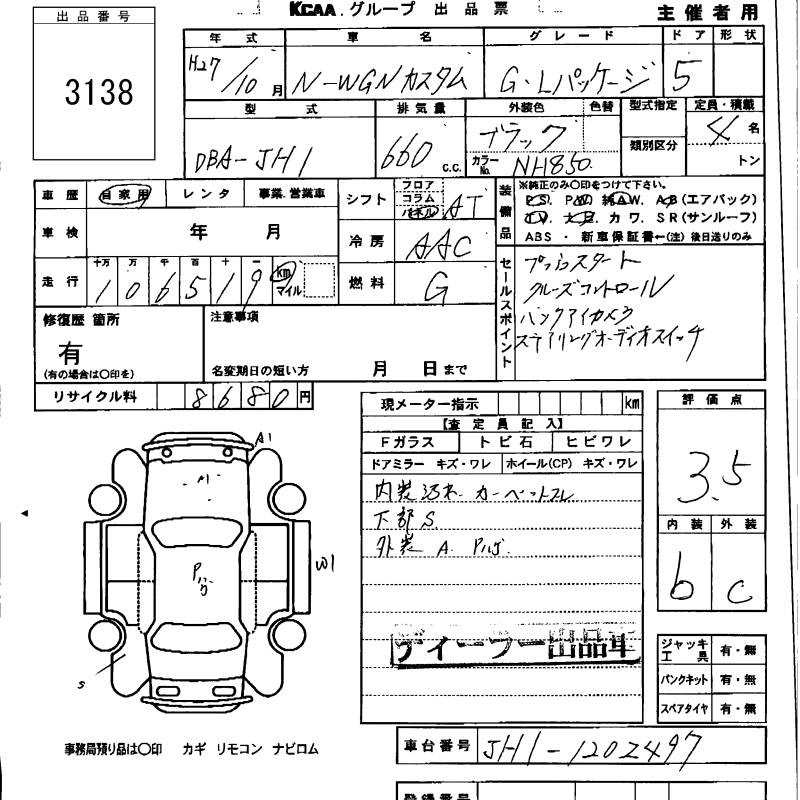 KCAA.グループ 出品票
主催者用
出品番号
3138
年式 車名 グレード ドア 形状
H27/10月 N-WGNカスタム G・Lパッケージ 5
型式 排気量 外装色 色替 型式指定 定員・積載
DBA-JH1 660 c.c. ブラック 類別区分 4名
カラーNo. NH850. トン
車歴 自家用 レンタ 事業.営業車
シフト フロア コラム パネル AT
装備品 ※純正のみ〇印をつけて下さい。
P.S. P.W. 純A.W. A.B(エアバック)
T.V. ナビ. カワ. SR(サンルーフ)
ABS・新車保証書←(注)後日送りのみ
車検 年 月
冷房 AAC
走行 十万 万 千 百 十 一
106519 km マイル
燃料 G
セールスポイント
プッシュスタート
クルーズコントロール
バックアイカメラ
ステアリングオーディオスイッチ
修復歴 箇所
有
(有の場合は〇印を)
注意事項
名変期日の短い方 月 日まで
リサイクル料 8680円
現メーター指示 km
【査定員記入】
Fガラス トビ石 ヒビワレ
ドアミラー キズ・ワレ ホイール(CP) キズ・ワレ
内装汚れ カーペットスレ
下部S.
外装 A. Pハゲ.
ディーラー出品車
評価点
3.5
内装 外装
b c
A1
Pハゲ
W1
S
ジャッキ工具 有・無
パンクキット 有・無
スペアタイヤ 有・無
事務局預り品は〇印 カギ リモコン ナビロム
車台番号 JH1-1202497
登録番号